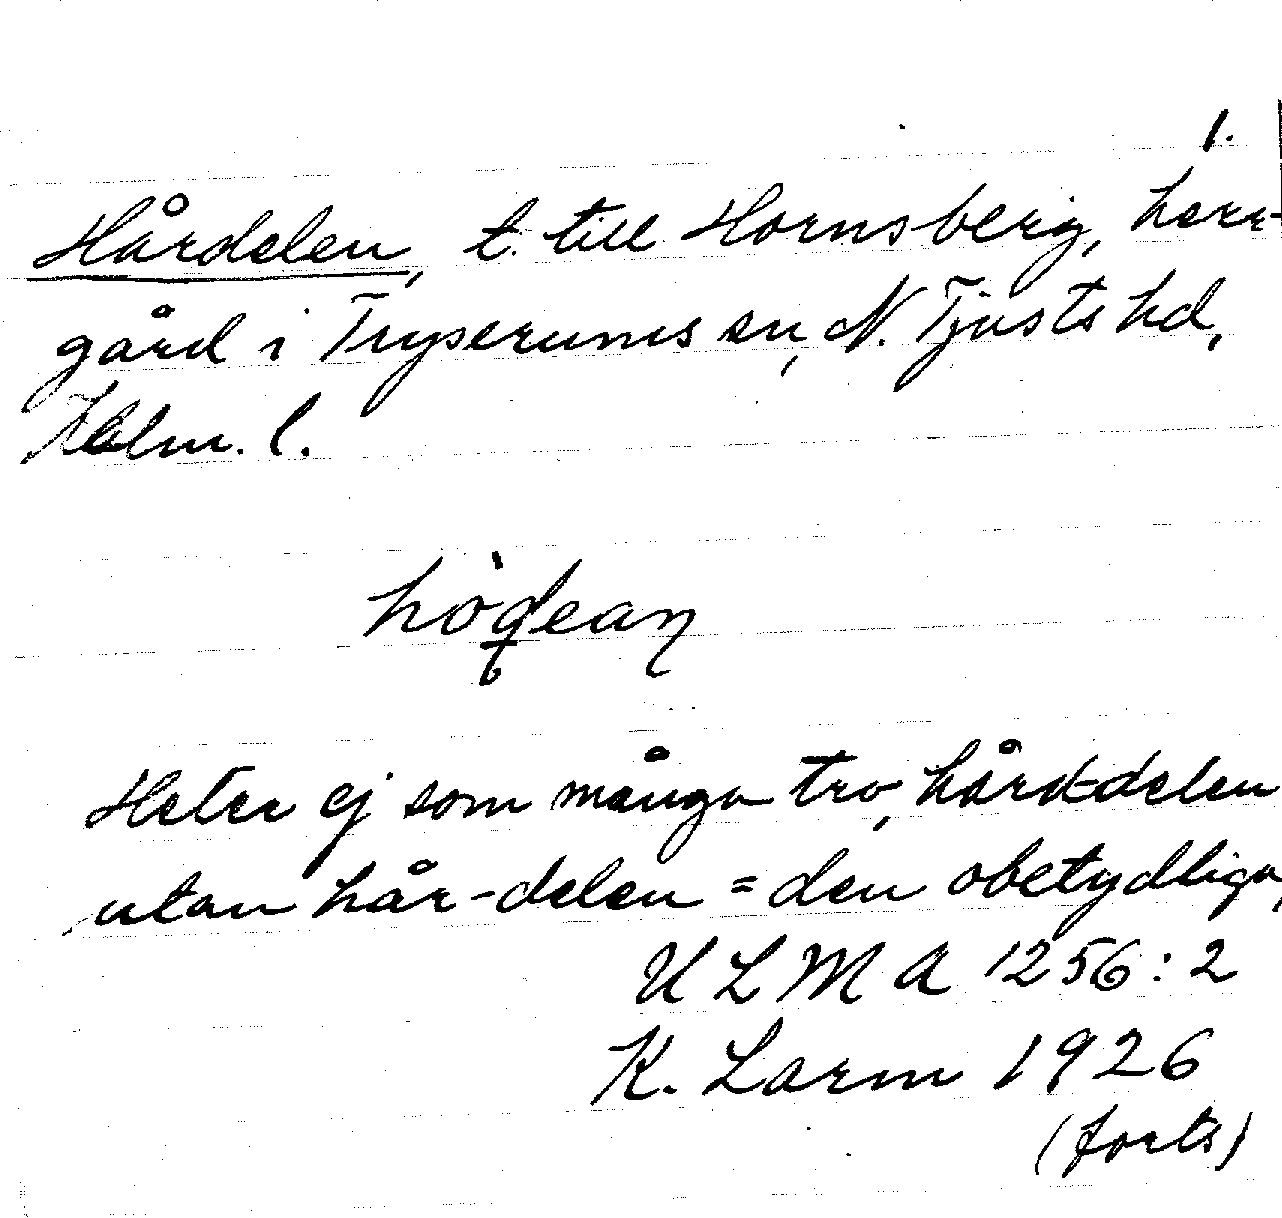 1.
Hårdelen, t. till Hornsberg, herr-
gård i Tryserums sn, N. Tjusts hd,
Kalm. l.
Heter ej som många tro, hård-delen
utan hår-delen = den obetydliga,
ULMA 1256:2
K. Larm 1926
(forts)